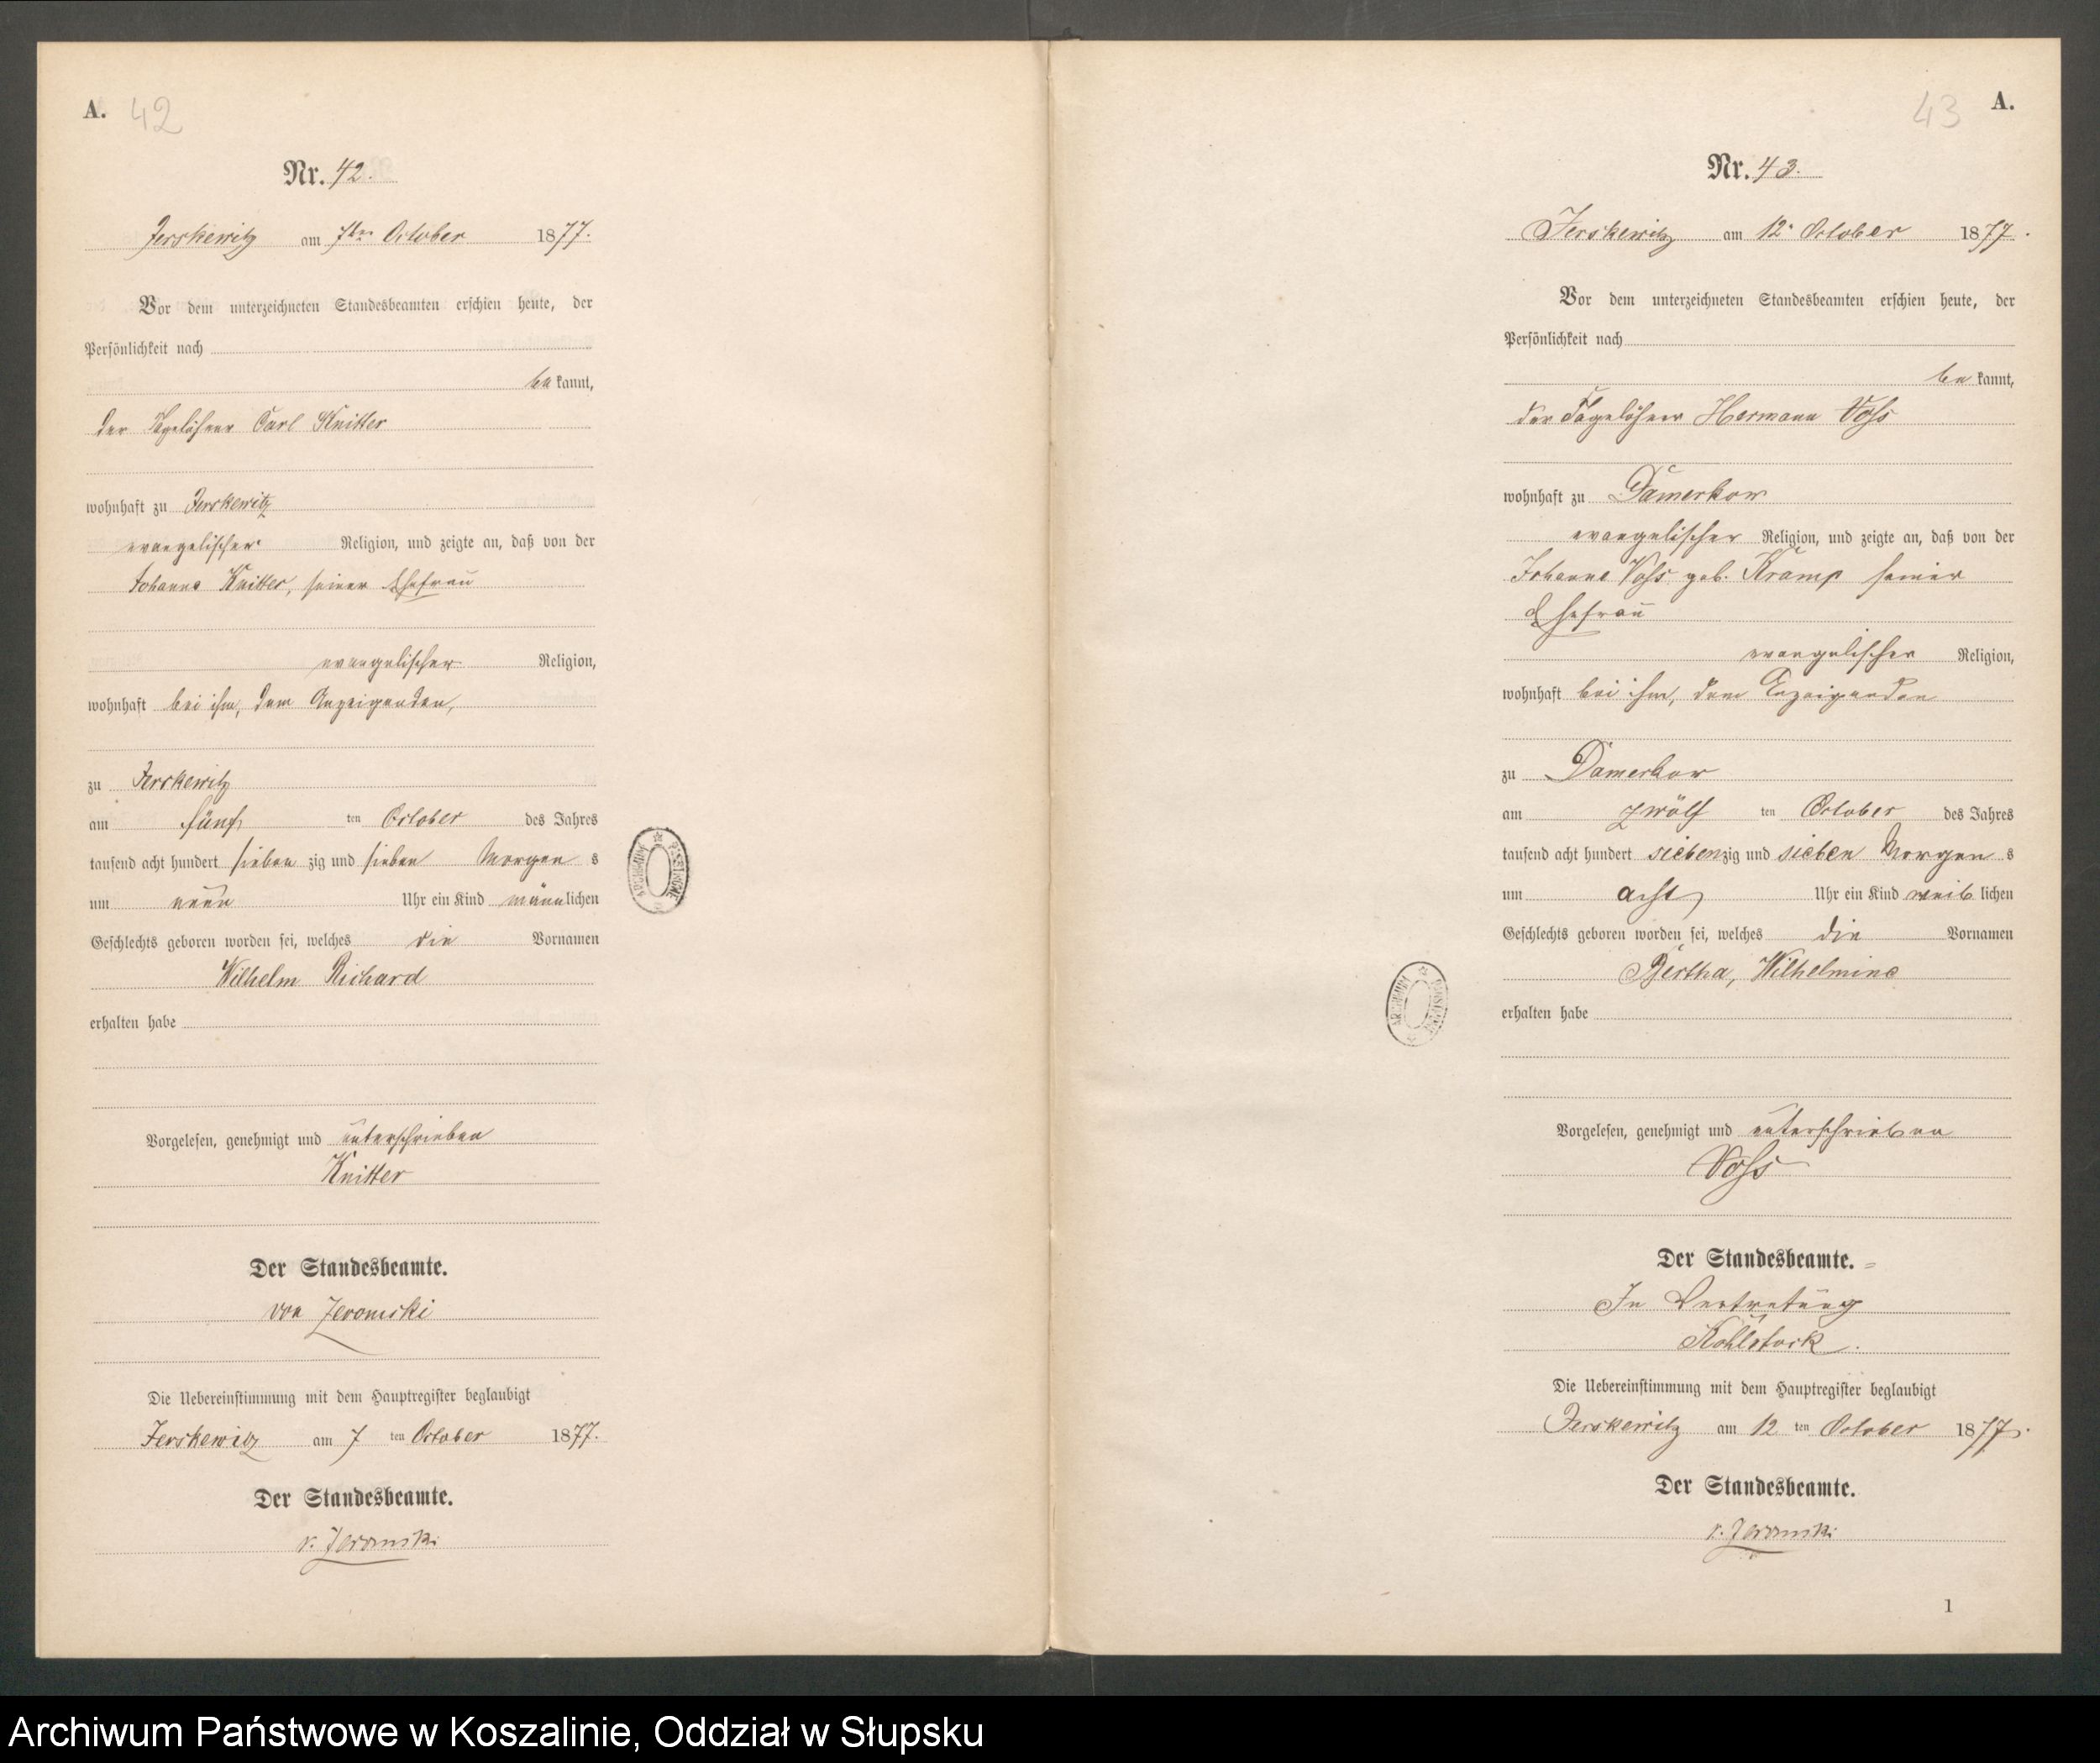 A. 42
Nr. 42.
Jerskewitz am 7ten October 1877.
Vor dem unterzeichneten Standesbeamten erschien heute, der
Persönlichkeit nach
bekannt,
der Tagelöhner Carl Knitter
wohnhaft zu Jerskewitz
evangelischer Religion, und zeigte an, daß von der
Johanne Knitter, seiner Ehefrau
evangelischer Religion,
wohnhaft bei ihm, dem Anzeigenden,
zu Jerskewitz
am fünften October des Jahres
tausend acht hundert siebenzig und sieben Morgens
um neun Uhr ein Kind männlichen
Geschlechts geboren worden sei, welches die Vornamen
Wilhelm Richard
erhalten habe
Vorgelesen, genehmigt und unterschrieben
Knitter
Der Standesbeamte.
von Zeromski
Die Uebereinstimmung mit dem Hauptregister beglaubigt
Jerskewitz am 7ten October 1877.
Der Standesbeamte.
v. Zeromski
43 A.
Nr. 43.
Jerskewitz am 12. October 1877.
Vor dem unterzeichneten Standesbeamten erschien heute, der
Persönlichkeit nach
bekannt,
der Tagelöhner Hermann Voss
wohnhaft zu Damerkow
evangelischer Religion, und zeigte an, daß von der
Johanne Voss geb. Kramp seiner
Ehefrau
evangelischer Religion,
wohnhaft bei ihm, dem Anzeigenden
zu Damerkow
am zwölften October des Jahres
tausend acht hundert siebenzig und sieben Morgens
um acht Uhr ein Kind weiblichen
Geschlechts geboren worden sei, welches die Vornamen
Bertha, Wilhelmine
erhalten habe
Vorgelesen, genehmigt und unterschrieben
Voss
Der Standesbeamte.
In Vertretung
Kohlstock.
Die Uebereinstimmung mit dem Hauptregister beglaubigt
Jerskewitz am 12ten October 1877.
Der Standesbeamte.
v. Zeromski
1
Archiwum Państwowe w Koszalinie, Oddział w Słupsku